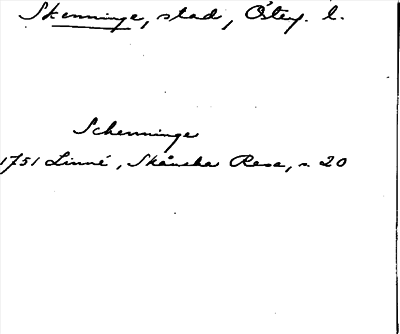 Skenninge, stad,Österg. l.
Schenninge
1751 Linné, Skånska Resa, s. 20